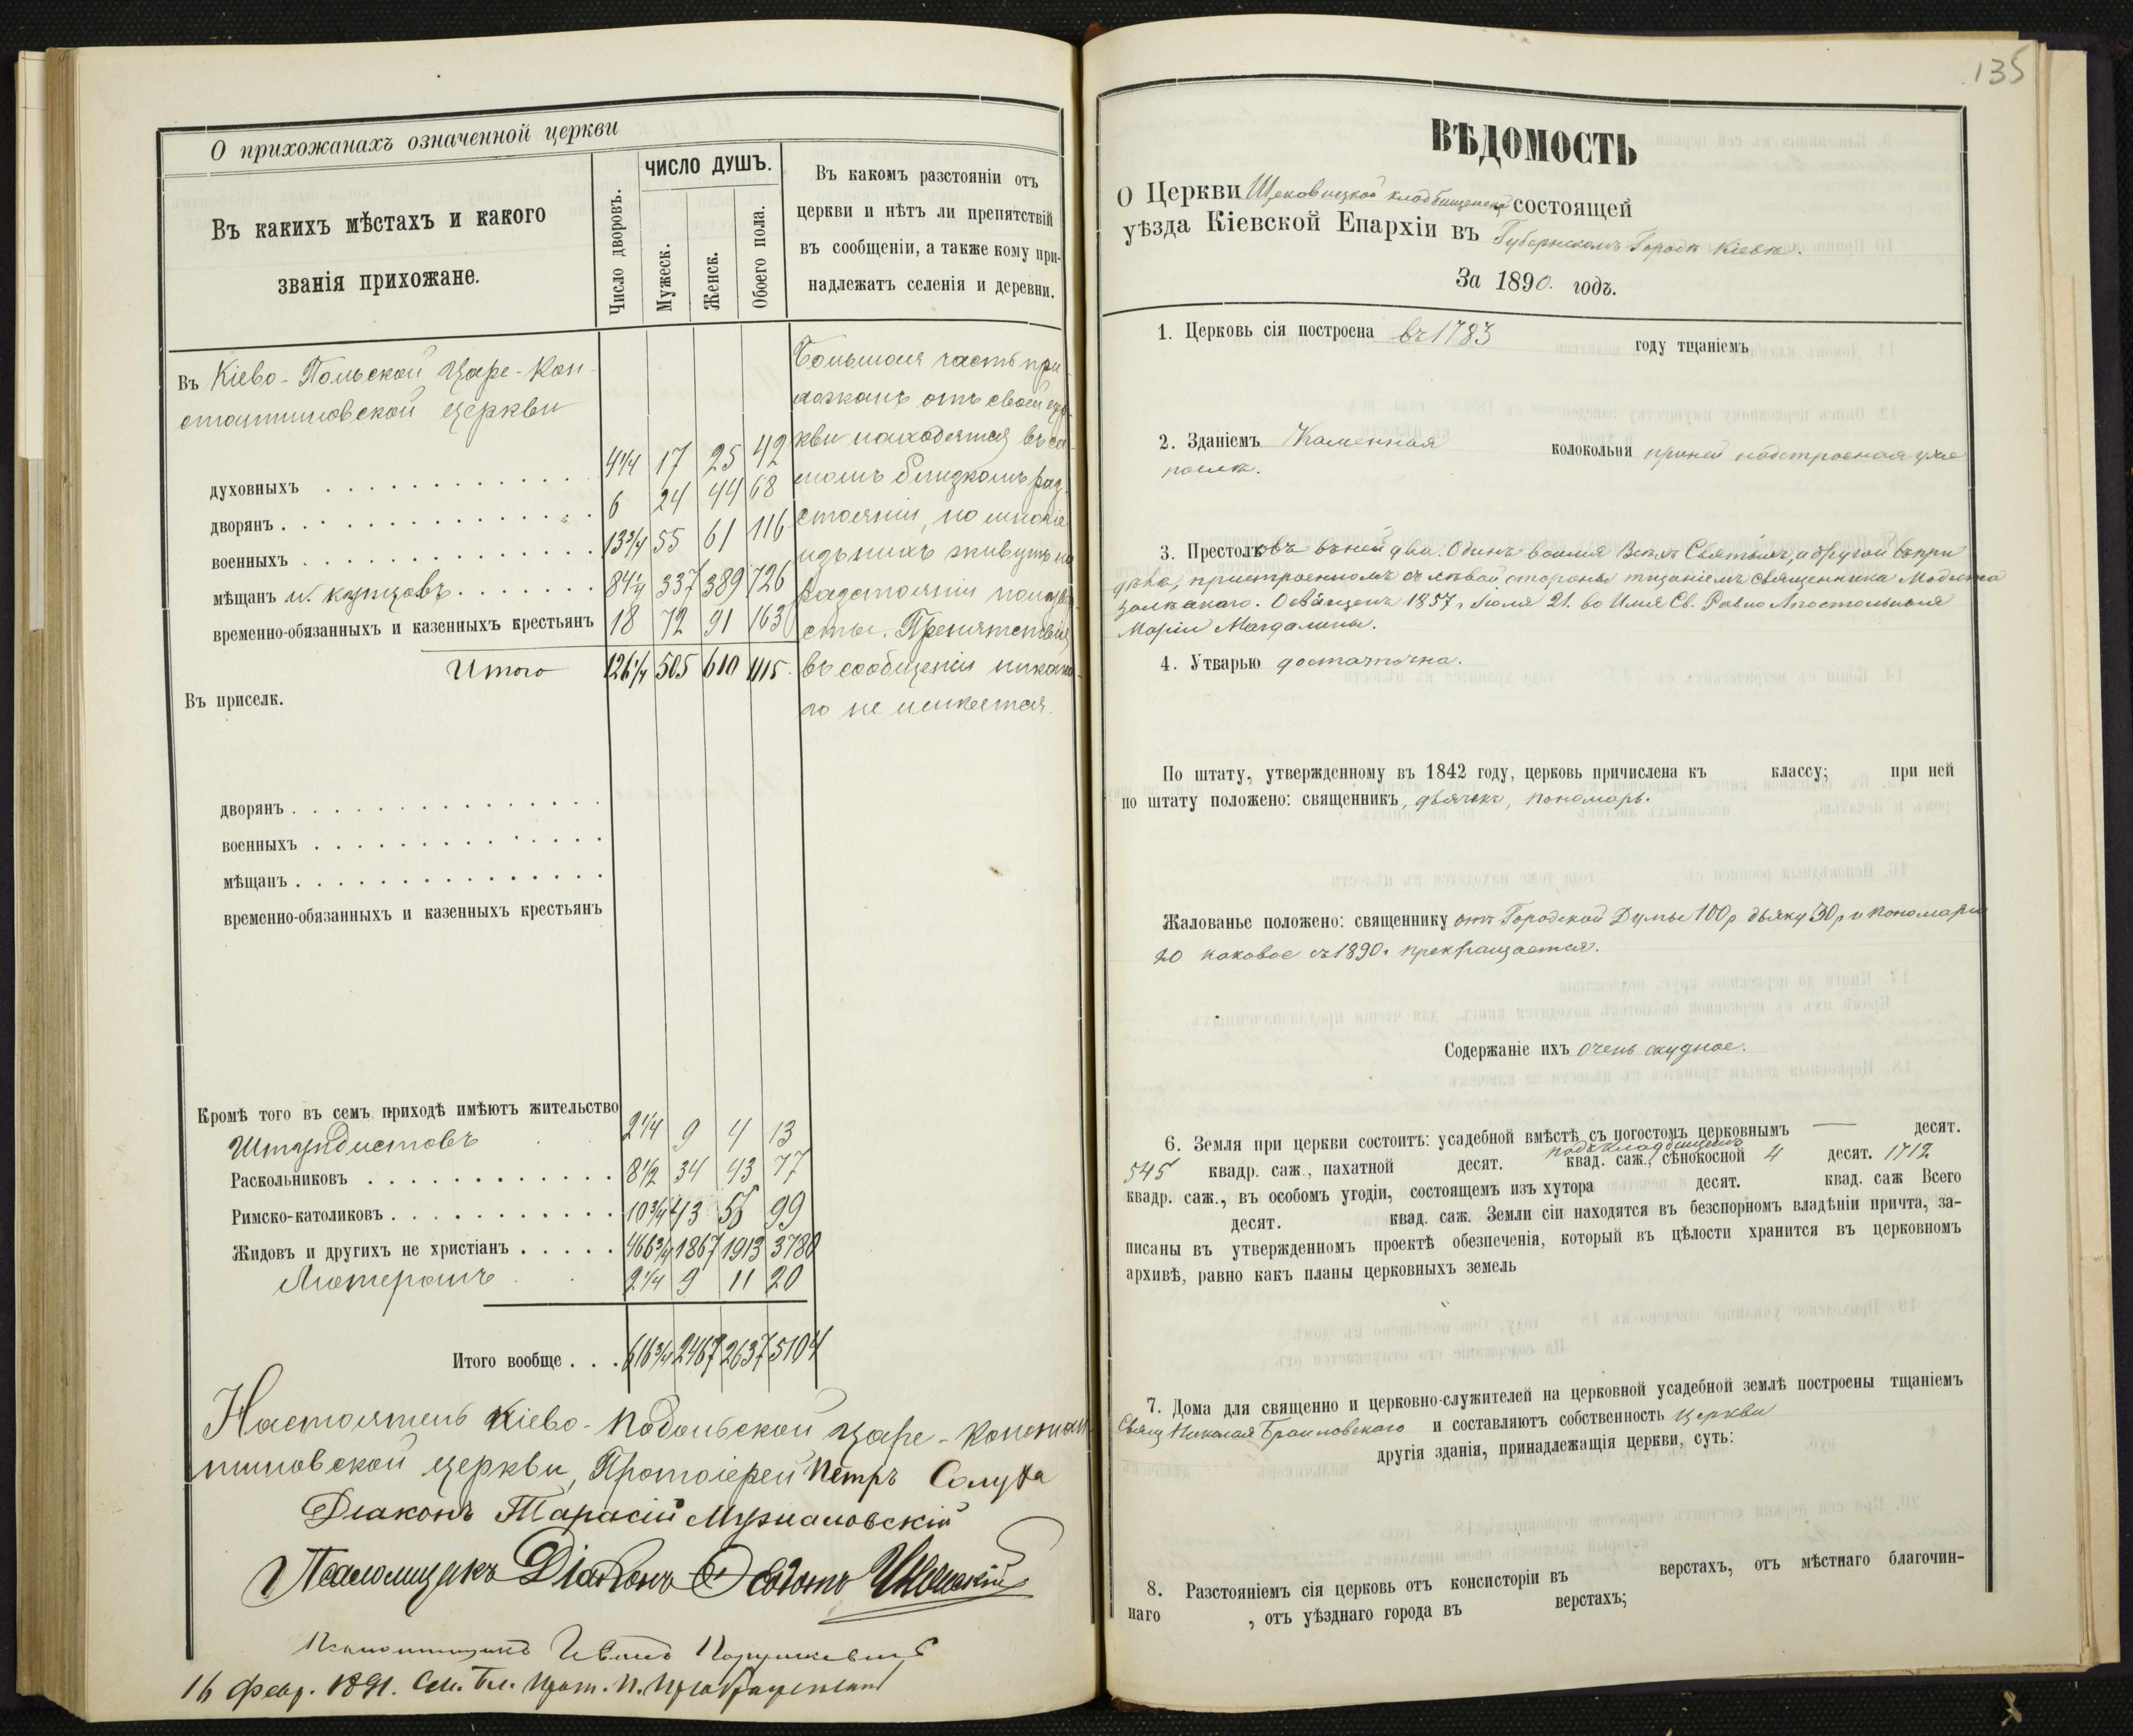 О прихожанахъ означенной церкви
Въ какихъ мѣстахъ и какого
званія прихожане.
Число дворовъ.
ЧИСЛО ДУШЪ.
Мужеск.
Женск.
Обоего пола.
Въ какомъ разстояніи отъ
церкви и нѣтъ ли препятствій
въ сообщеніи, а также кому при-
надлежатъ селенія и деревни.
Въ Кіево-Польской Царе-Кон-
стантиновской церкви
духовныхъ 4¼ 17 25 42
дворянъ 6 24 44 68
военныхъ 13¾ 55 61 116
мѣщанъ и купцовъ 84¼ 337 389 726
временно-обязанныхъ и казенныхъ крестьянъ 18 72 91 163
Итого 126¼ 505 610 1115
Большая часть при-
хожанъ отъ своей цер-
кви находятся въ са-
момъ близкомъ раз-
стояніи, но многіе
изъ нихъ живутъ на
разстояніи полувер-
сты. Препятствія
въ сообщеніи никако-
го не имѣется.
Въ приселк.
дворянъ
военныхъ
мѣщанъ
временно-обязанныхъ и казенныхъ крестьянъ
Кромѣ того въ семъ приходѣ имѣютъ жительство
Штундистовъ 2¼ 9 4 13
Раскольниковъ 8½ 34 43 77
Римско-католиковъ 10¾ 43 56 99
Жидовъ и другихъ не христіанъ 466¾ 1867 1913 3780
Лютеранъ 2¼ 9 11 20
Итого вообще 616¾ 2467 2637 5104
Настоятель Кіево-Подольской Царе-Констан-
тиновской церкви, Протоіерей Петръ Солуха
Діаконъ Тарасій
Псаломщикъ Діаконъ Ѳеодотъ
Псаломщикъ Иванъ
16 Февр. 1891.
135
ВѢДОМОСТЬ
О Церкви Щековицкой кладбищенской состоящей
уѣзда Кіевской Епархіи въ Губернскомъ Городѣ Кіевѣ.
За 1890. годъ.
1. Церковь сія построена въ 1783 году тщаніемъ
2. Зданіемъ Каменная колокольня при ней надстроеная уже
послѣ.
3. Престоловъ въ ней два. Одинъ во имя Всѣхъ Святыхъ, а другой въ при
дѣлѣ, пристроенномъ съ лѣвой стороны тщаніемъ священника Модеста
Освященъ 1857 г. Іюля 21. во Имя Св. Равно Апостольныя
Маріи Магдалины.
4. Утварью достаточна.
По штату, утвержденному въ 1842 году, церковь причислена къ классу; при ней
по штату положено: священникъ, дьячекъ, пономарь.
Жалованье положено: священнику отъ Городской Думы 100 р дьяку 30 р и пономарю
20 каковое съ 1890 г прекращается.
Содержаніе ихъ очень скудное.
6. Земля при церкви состоитъ: усадебной вмѣстѣ съ погостомъ церковнымъ — десят.
подъ кладбищемъ
545 квадр. саж., пахатной десят. квад. саж., сѣнокосной 4 десят. 1712
квадр. саж., въ особомъ угодіи, состоящемъ изъ хутора десят. квад. саж Всего
десят. квад. саж. Земли сіи находятся въ безспорномъ владѣніи причта, за-
писаны въ утвержденномъ проектѣ обезпеченія, который въ цѣлости хранится въ церковномъ
архивѣ, равно какъ планы церковныхъ земель
7. Дома для священно и церковно-служителей на церковной усадебной землѣ построены тщаніемъ
Свящ Николая Браиловскаго и составляютъ собственность Церкви
другія зданія, принадлежащія церкви, суть:
8. Разстояніемъ сія церковь отъ консисторіи въ верстахъ, отъ мѣстнаго благочин-
наго , отъ уѣзднаго города въ верстахъ;